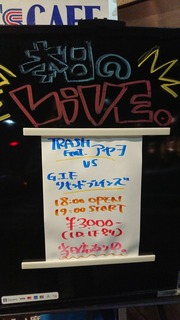 CAFE
本日の
LiVE。
TRASH
feat. アヤヲ
VS
G.I.F
リキッドブレインズ
18:00 OPEN
19:00 START
¥3000-
(1D.1F込)